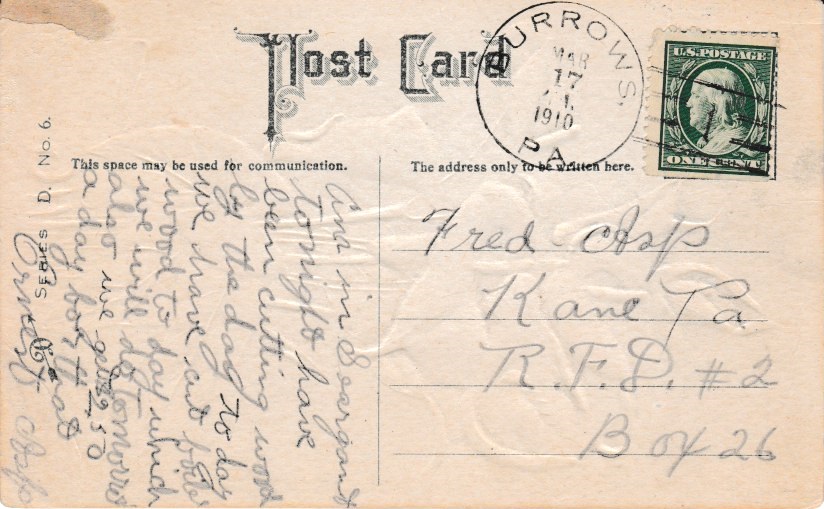 Post Card
BURROWS.
MAR
17
1910
PA
U.S. POSTAGE
ONE CENT
1
This space may be used for communication.
The address only to be written here.
SERIES D. No. 6.
Fred Asp
Kane Pa
R.F.D. #2
Box 26
Am in Seargant
tonight have
been cutting wood
by the day to day
we have cut
wood to day which
we will do tomorro
also we get 2.50
a day boy that
Ernest Asp